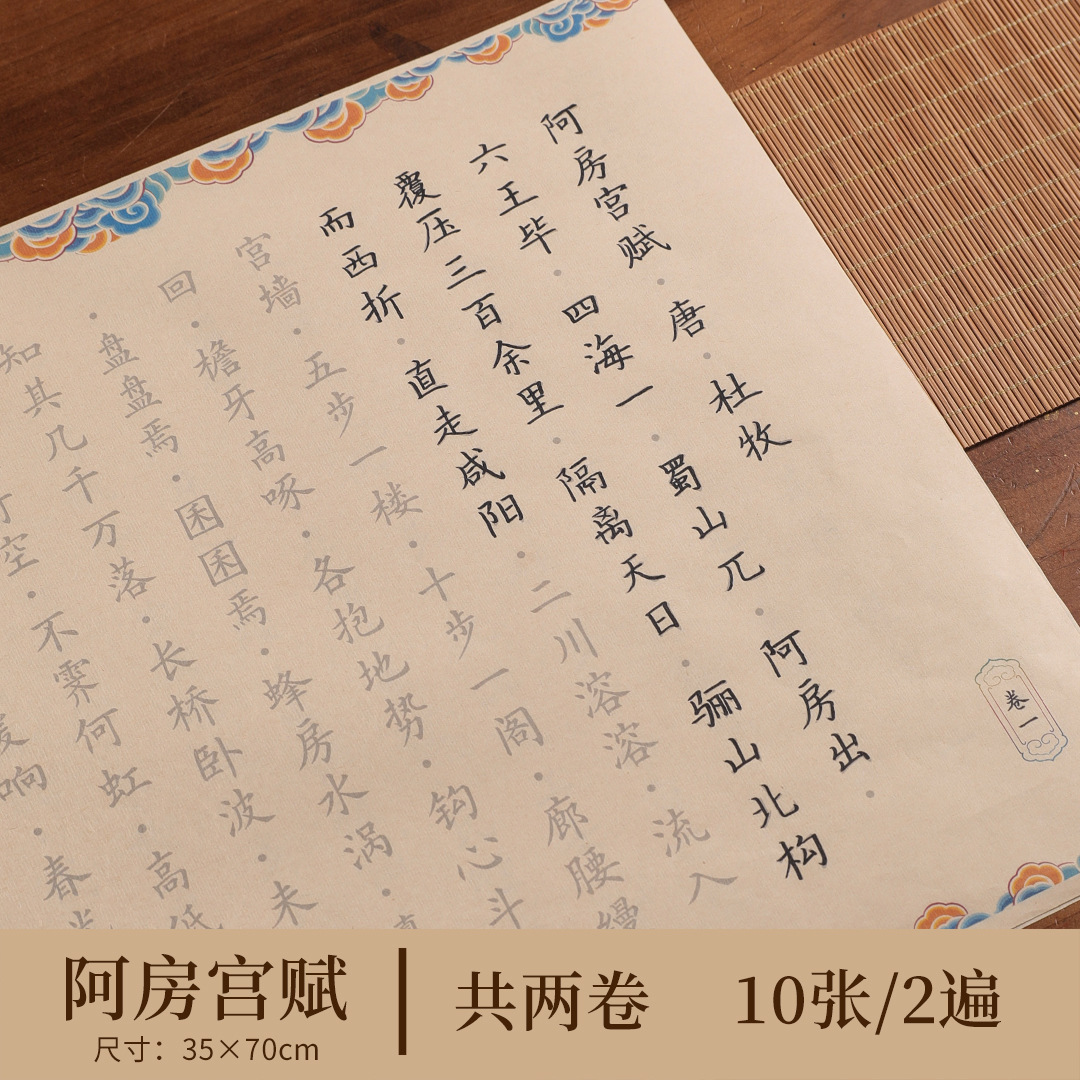 阿房宫赋·唐·杜牧
六王毕·四海一·蜀山兀·阿房出·
覆压三百余里·隔离天日·骊山北构
而西折·直走咸阳·二川溶溶·流入
宫墙·五步一楼·十步一阁·廊腰缦
回·檐牙高啄·各抱地势·钩心斗
·盘盘焉·囷囷焉·蜂房水涡·
知其几千万落·长桥卧波·未
空·不霁何虹·高低
响·春光
卷一
阿房宫赋
尺寸：35×70cm
共两卷
10张/2遍